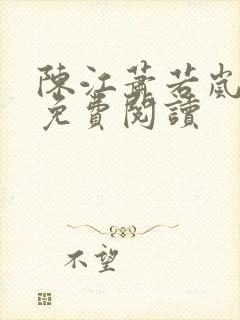 陳江蕭若嵐
免費閱讀
不望